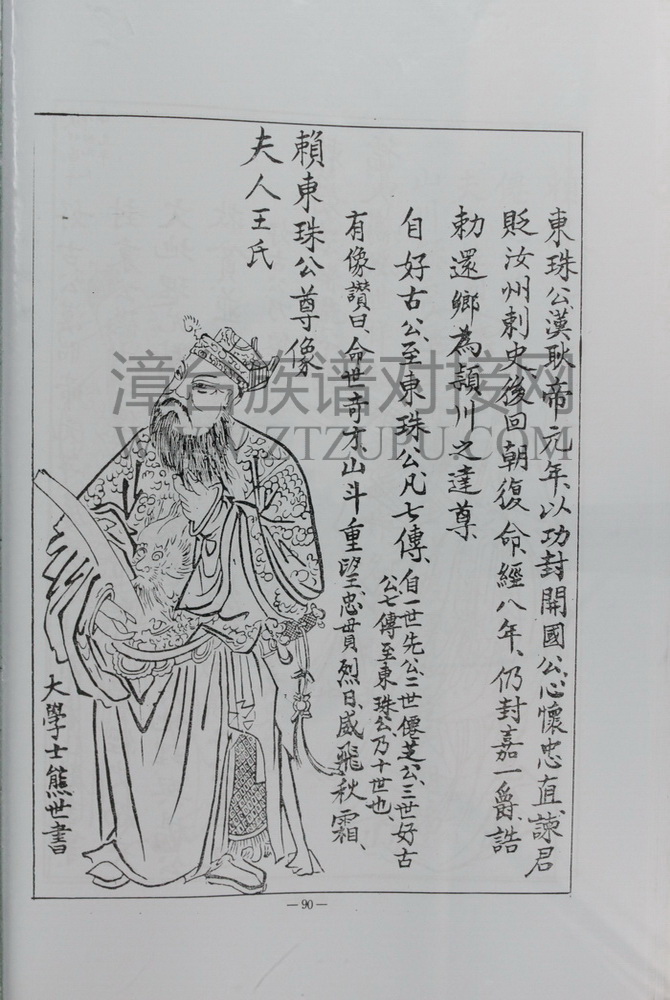 東珠公漢耿帝元年、以功封開國公、心懷忠直、諫君
貶汝州刺史後回朝復命、經八年、仍封嘉一爵、誥
勅還鄉為頴川之達尊、
自好古公、至東珠公凡七傳、自一世先公、二世僊芝公、三世好古
公七傳至東珠公乃十世也、
有像讚曰、命世奇才、山斗重望、忠貫烈日、威飛秋霜、
賴東珠公尊像
夫人王氏
大學士熊世書
漳台族谱对接网
WWW.ZTZUPU.COM
—90—